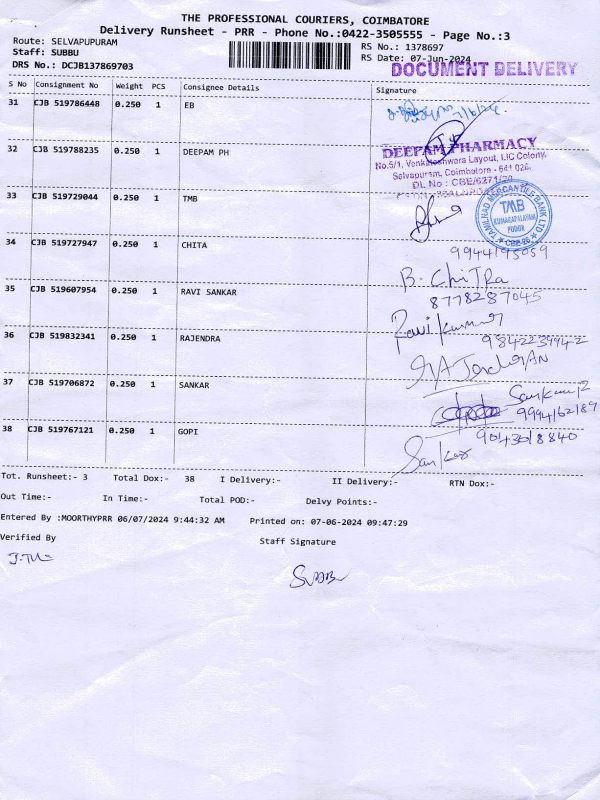 THE PROFESSIONAL COURIERS, COIMBATORE
Delivery Runsheet - PRR - Phone No.:0422-3505555 - Page No.:3
Route: SELVAPUPURAM
RS No.: 1378697
Staff: SUBBU
RS Date: 07-Jun-2024
DRS No.: DCJB137869703
DOCUMENT DELIVERY
S No Consignment No Weight PCS Consignee Details Signature
31 CJB 519786448 0.250 1 EB
32 CJB 519788235 0.250 1 DEEPAM PH
DEEPAM PHARMACY
No.5/1, Venkateshwara Layout, LIC Colony,
Selvapuram, Coimbatore - 641 026.
33 CJB 519729044 0.250 1 TMB
TAMILNAD MERCANTILE BANK LTD
TMB
KUMARAPALAYAM
34 CJB 519727947 0.250 1 CHITA
9944195059
B. ChiTRa
8778287045
35 CJB 519607954 0.250 1 RAVI SANKAR
Ravikumar
36 CJB 519832341 0.250 1 RAJENDRA
9842239942
37 CJB 519706872 0.250 1 SANKAR
38 CJB 519767121 0.250 1 GOPI
Sankar
Tot. Runsheet:- 3 Total Dox:- 38 I Delivery:- II Delivery:- RTN Dox:-
Out Time:- In Time:- Total POD:- Delvy Points:-
Entered By :MOORTHYPRR 06/07/2024 9:44:32 AM Printed on: 07-06-2024 09:47:29
Verified By Staff Signature